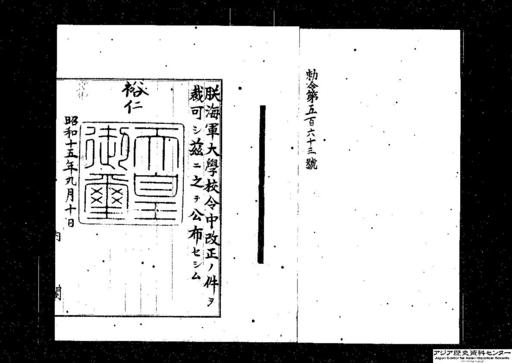 勅令第五百六十三號
朕海軍大學校令中改正ノ件ヲ
裁可シ茲ニ之ヲ公布セシム
裕仁
天皇御璽
昭和十五年九月十日
内閣
アジア歴史資料センター
Japan Center for Asian Historical Records